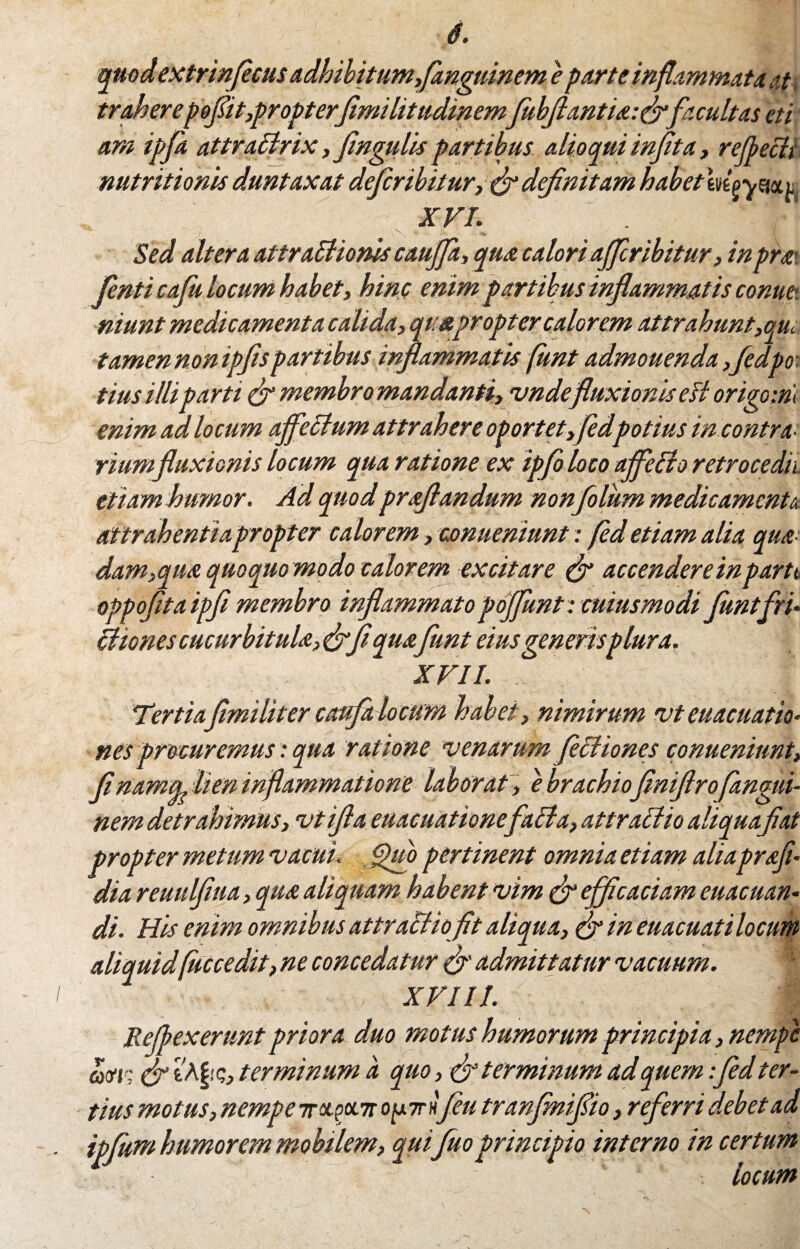 6.
quod extrinſecus adhibitum, ſanguinem è parte inflammata at
trahere poßit, propter ſimilitudinem ſubſtantiæ: & facultas eti
am ipſa attractrix, ſingulis partibus alioqui inſita, reſpectu
nutritionis duntaxat deſcribitur, & definitam habet
XVI.
Sed altera attractionis cauſſa, quæ calori aſſcribitur, in præ
ſenti caſu locum habet, hinc enim partibus inflammatis conue
niunt medicamenta calida, quæ propter calorem attrahunt, quæ
tamen non ipſis partibus inflammatis ſunt admouenda, ſed po
tius illi parti & membro mandanti, vnde fluxionis est origo: ni
enim ad locum affectum attrahere oportet, ſed potius in contra
rium fluxionis locum qua ratione ex ipſo loco affecto retrocedit
etiam humor. Ad quod præſtandum non ſolùm medicamenta
attrahentia propter calorem, conueniunt: ſed etiam alia quæ
dam, quæ quoquo modo calorem excitare & accendere in parte
oppoſita ipſi membro inflammato poſſunt: cuiusmodi ſunt fri-
ctiones cucurbitulæ, & ſi quæ ſunt eius generis plura.
XVII.
Tertia ſimiliter cauſa locum habet, nimirum vt euacuatio-
nes procuremus: qua ratione venarum ſectiones conueniunt,
ſi namq; lien inflammatione laborat, è brachio ſiniſtro ſangui-
nem detrahimus, vt iſta euacuatione facta, attractio aliqua fiat
propter metum vacui. Quò pertinent omnia etiam alia præſi-
dia reuulſiua, quæ aliquam habent vim & efficaciam euacuan-
di. His enim omnibus attractio fit aliqua, & in euacuati locum
aliquid ſuccedit, ne concedatur & admittatur vacuum.
XVIII.
Reſpexerunt priora duo motus humorum principia, nempè
ὦσις & ἕλξις, terminum à quo, & terminum ad quem: ſed ter-
tius motus, nempe παραπομπὴ ſeu tranſmißio, referri debet ad
ipſum humorem mobilem, qui ſuo principio interno in certum
locum